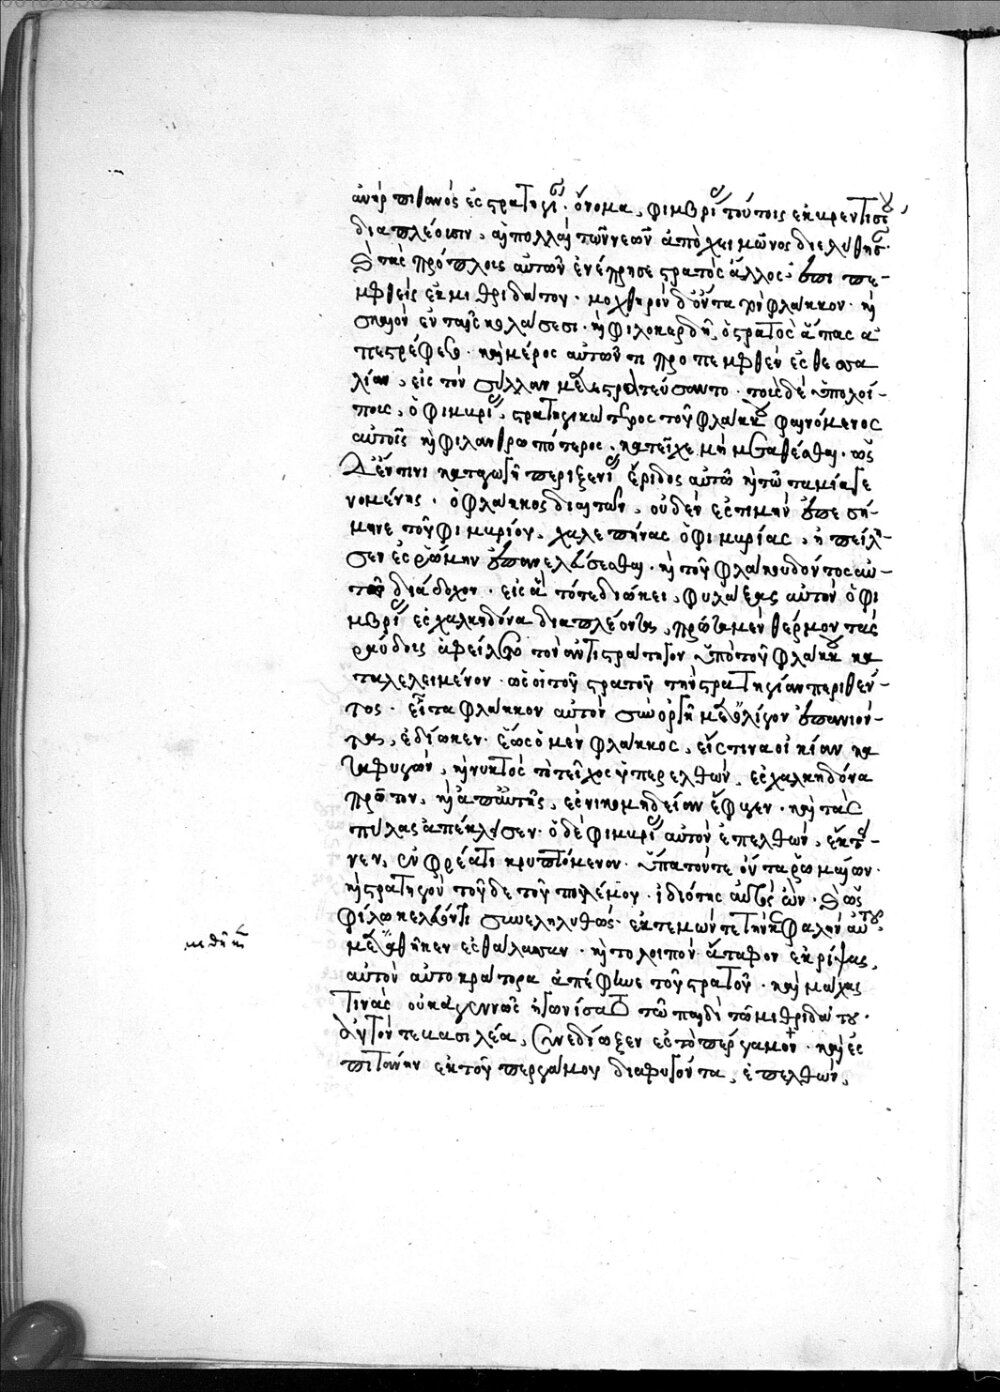 ἀνὴρ πιθανὸς ἐς στρατηγίαν· ὄνομα, φιμβρίας τούτοις ἐκ βρεντεσίου,
διαπλέουσιν, αἱ πολλαὶ τῶν νεῶν ἀπὸ χειμῶνος διελύθησαν·
καὶ τὰς πρόπλους αὐτῶν ἐνέπρησε στρατὸς ἄλλος ἐπιπε-
μφθεὶς ἐκ μιθριδάτου· μοχθηρὸν δ' ὄντα τὸν φλάκκον· καὶ
σκαιὸν ἐν ταῖς κολάσεσι· καὶ φιλοκερδῆ, ὁ στρατὸς ἅπας ἀ
πεστρέφετο· καὶ μέρος αὐτῶν τι προπεμφθὲν ἐς θεσσα
λίαν, εἰς τὸν σύλλαν μετεστρατεύσαντο· τοὺς δὲ ὑπολοί-
πους, ὁ φιμβρίας, στρατηγικώτερος τοῦ φλάκκου φαινόμενος
αὐτοῖς καὶ φιλανθρωπότερος, κατεῖχε μὴ μεταθέσθαι· ὡς
δ' ἔν τινι καταγωγῇ περὶ ξενίας ἔριδος αὐτῷ καὶ τῷ ταμίᾳ γε
νομένης· ὁ φλάκκος διαιτῶν, οὐδὲν ἐς τιμὴν ἐπεσή-
μηνε τοῦ φιμβρίου, χαλεπήνας ὁ φιμβρίας, ἠπείλη-
σεν ἐς ῥώμην ἐπανελεύσεσθαι· καὶ τοῦ φλάκκου δόντος αὐ-
τῷ διάδοχον· εἰς ἃ τότε διῴκει, φυλάξας αὐτὸν ὁ φι
μβρίας ἐς χαλκηδόνα διαπλέοντα, πρῶτα μὲν θέρμον τὰς
ῥάβδους ἀφείλετο τὸν ἀντιστράτηγον ὑπὸ τοῦ φλάκκου κα
ταλελειμένον· ὡς οἱ τοῦ στρατοῦ τὴν στρατηγίαν περιθέν-
τος· εἶτα φλάκκον αὐτὸν σὺν ὀργῇ μετ' ὀλίγον ἐπανιόν-
τα, ἐδίωκεν· ἕως ὁ μὲν φλάκκος, εἴς τινα οἰκίαν κα
ταφυγών, καὶ νυκτὸς τὸ τεῖχος ὑπερελθών, ἐς χαλκηδόνα
πρῶτον, καὶ ἀπ' αὐτῆς, ἐς νικομηδείαν ἔφυγεν· καὶ τὰς
πύλας ἀπέκλεισεν· ὁ δὲ φιμβρίας αὐτὸν ἐπελθών, ἔκτει-
νεν, ἐν φρέατι κρυπτόμενον· ὕπατόν τε ὄντα ῥωμαίων·
καὶ στρατηγὸν τοῦδε τοῦ πολέμου· ἰδιώτης αὐτὸς ὤν· καὶ ὡς
φίλῳ κελεύοντι συνεληλυθώς· ἐκτεμών τε τὴν κεφαλὴν αὐτοῦ,
μεθῆκεν ἐς θάλασσαν· καὶ τὸ λοιπὸν ἄταφον ἐκρίψας,
αὑτὸν αὐτοκράτορα ἀπέφηνε τοῦ στρατοῦ· καὶ μάχας
τινὰς οὐκ ἀγεννῶς ἠγωνίσατο τῷ παιδὶ τῷ μιθριδάτου·
αὐτόν τε βασιλέα, συνεδίωξεν ἐς τὸ πέργαμον· καὶ ἐς
πιτάνην ἐκ τοῦ περγάμου διαφυγόντα, ἐπελθών,